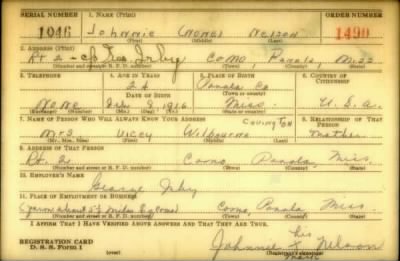 SERIAL NUMBER 1. NAME (Print) ORDER NUMBER
1046 Johnnie (None) Nelson 1490
(First) (Middle) (Last)
2. ADDRESS (Print)
Rt 2 - c/o Geo Irby Como, Panola, Miss
(Number and street or R. F. D. number) (Town) (County) (State)
3. TELEPHONE 4. AGE IN YEARS 5. PLACE OF BIRTH 6. COUNTRY OF CITIZENSHIP
24 Panola Co
DATE OF BIRTH (Town or county)
None July 8, 1916 Miss. U. S. A.
(Exchange) (Number) (Mo.) (Day) (Yr.) (State or country)
7. NAME OF PERSON WHO WILL ALWAYS KNOW YOUR ADDRESS Covington 8. RELATIONSHIP OF THAT PERSON
Mrs Vicey Wilbourne Mother
(Mr., Mrs., Miss) (First) (Middle) (Last)
9. ADDRESS OF THAT PERSON
Rt. 2 Como Panola Miss.
(Number and street or R. F. D. number) (Town) (County) (State)
10. EMPLOYER'S NAME
George Irby
11. PLACE OF EMPLOYMENT OR BUSINESS
Farm about 5½ miles E of Como Como, Panola Miss.
(Number and street or R. F. D. number) (Town) (County) (State)
I AFFIRM THAT I HAVE VERIFIED ABOVE ANSWERS AND THAT THEY ARE TRUE.
REGISTRATION CARD his
D. S. S. Form 1 Johnnie X Nelson
(Registrant's signature)
mark